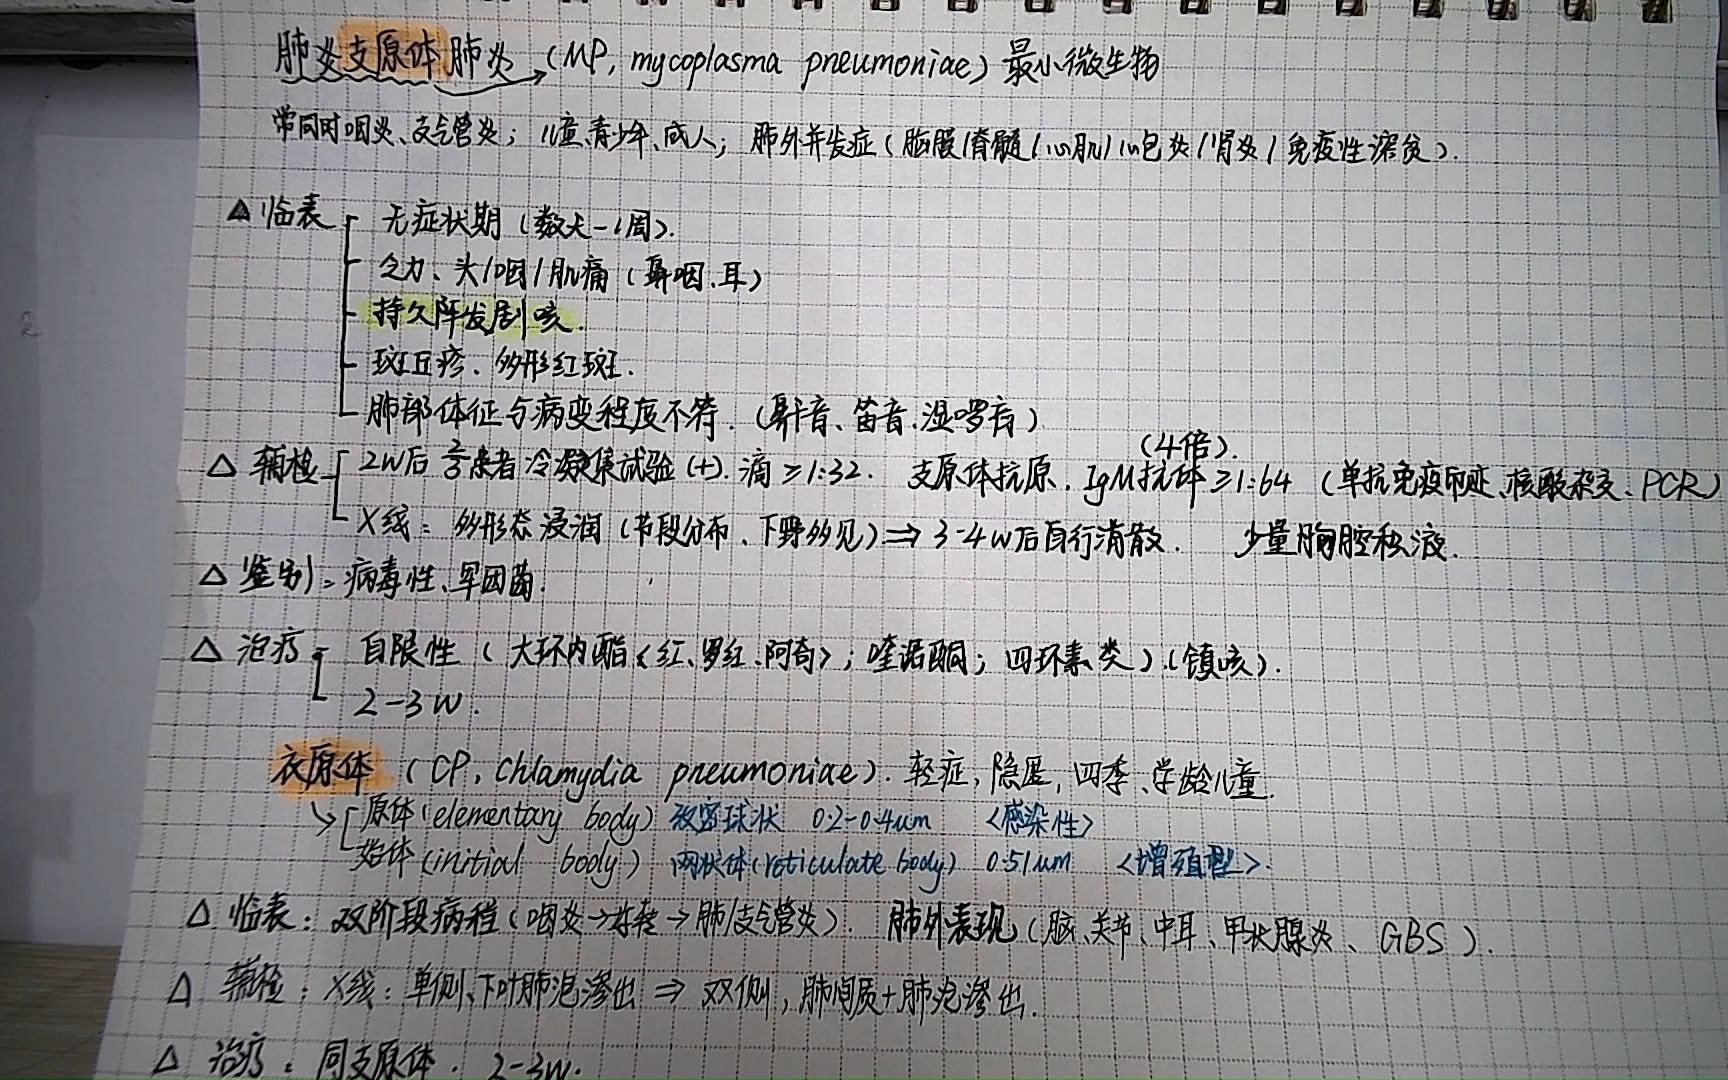 肺炎支原体肺炎 (MP, mycoplasma pneumoniae) 最小微生物
常同时咽炎、支气管炎; 儿童、青少年、成人; 肺外并发症 (脑膜/脊髓/心肌/心包炎/肾炎/免疫性溶贫).
△ 临表 无症状期 (数天-1周).
乏力、头/咽/肌痛 (鼻咽.耳)
持久阵发剧咳.
斑丘疹、多形红斑.
肺部体征与病变程度不符. (鼾音、笛音.湿啰音)
(4倍).
△ 辅检 2W后 2/3患者冷凝集试验 (+). 滴≥1:32. 支原体抗原. IgM抗体≥1:64 (单抗免疫印迹、核酸杂交、PCR)
X线: 多形态浸润 (节段分布、下野多见) ⇒ 3-4w后自行消散. 少量胸腔积液.
△ 鉴别: 病毒性、军团菌.
△ 治疗 自限性 (大环内酯<红、罗红、阿奇>; 喹诺酮; 四环素类). (镇咳).
2-3W.
衣原体 (CP, Chlamydia pneumoniae). 轻症, 隐匿, 四季、学龄儿童.
↘ 原体 (elementary body) 致密球状 0.2-0.4um <感染性>
始体 (initial body) 网状体 (reticulate body) 0.51um <增殖型>.
△ 临表: 双阶段病程 (咽炎→好转→肺/支气管炎). 肺外表现 (脑、关节、中耳、甲状腺炎、GBS).
△ 辅检: X线: 单侧、下叶肺泡渗出 ⇒ 双侧, 肺间质+肺泡渗出.
△ 治疗: 同支原体. 2-3W.